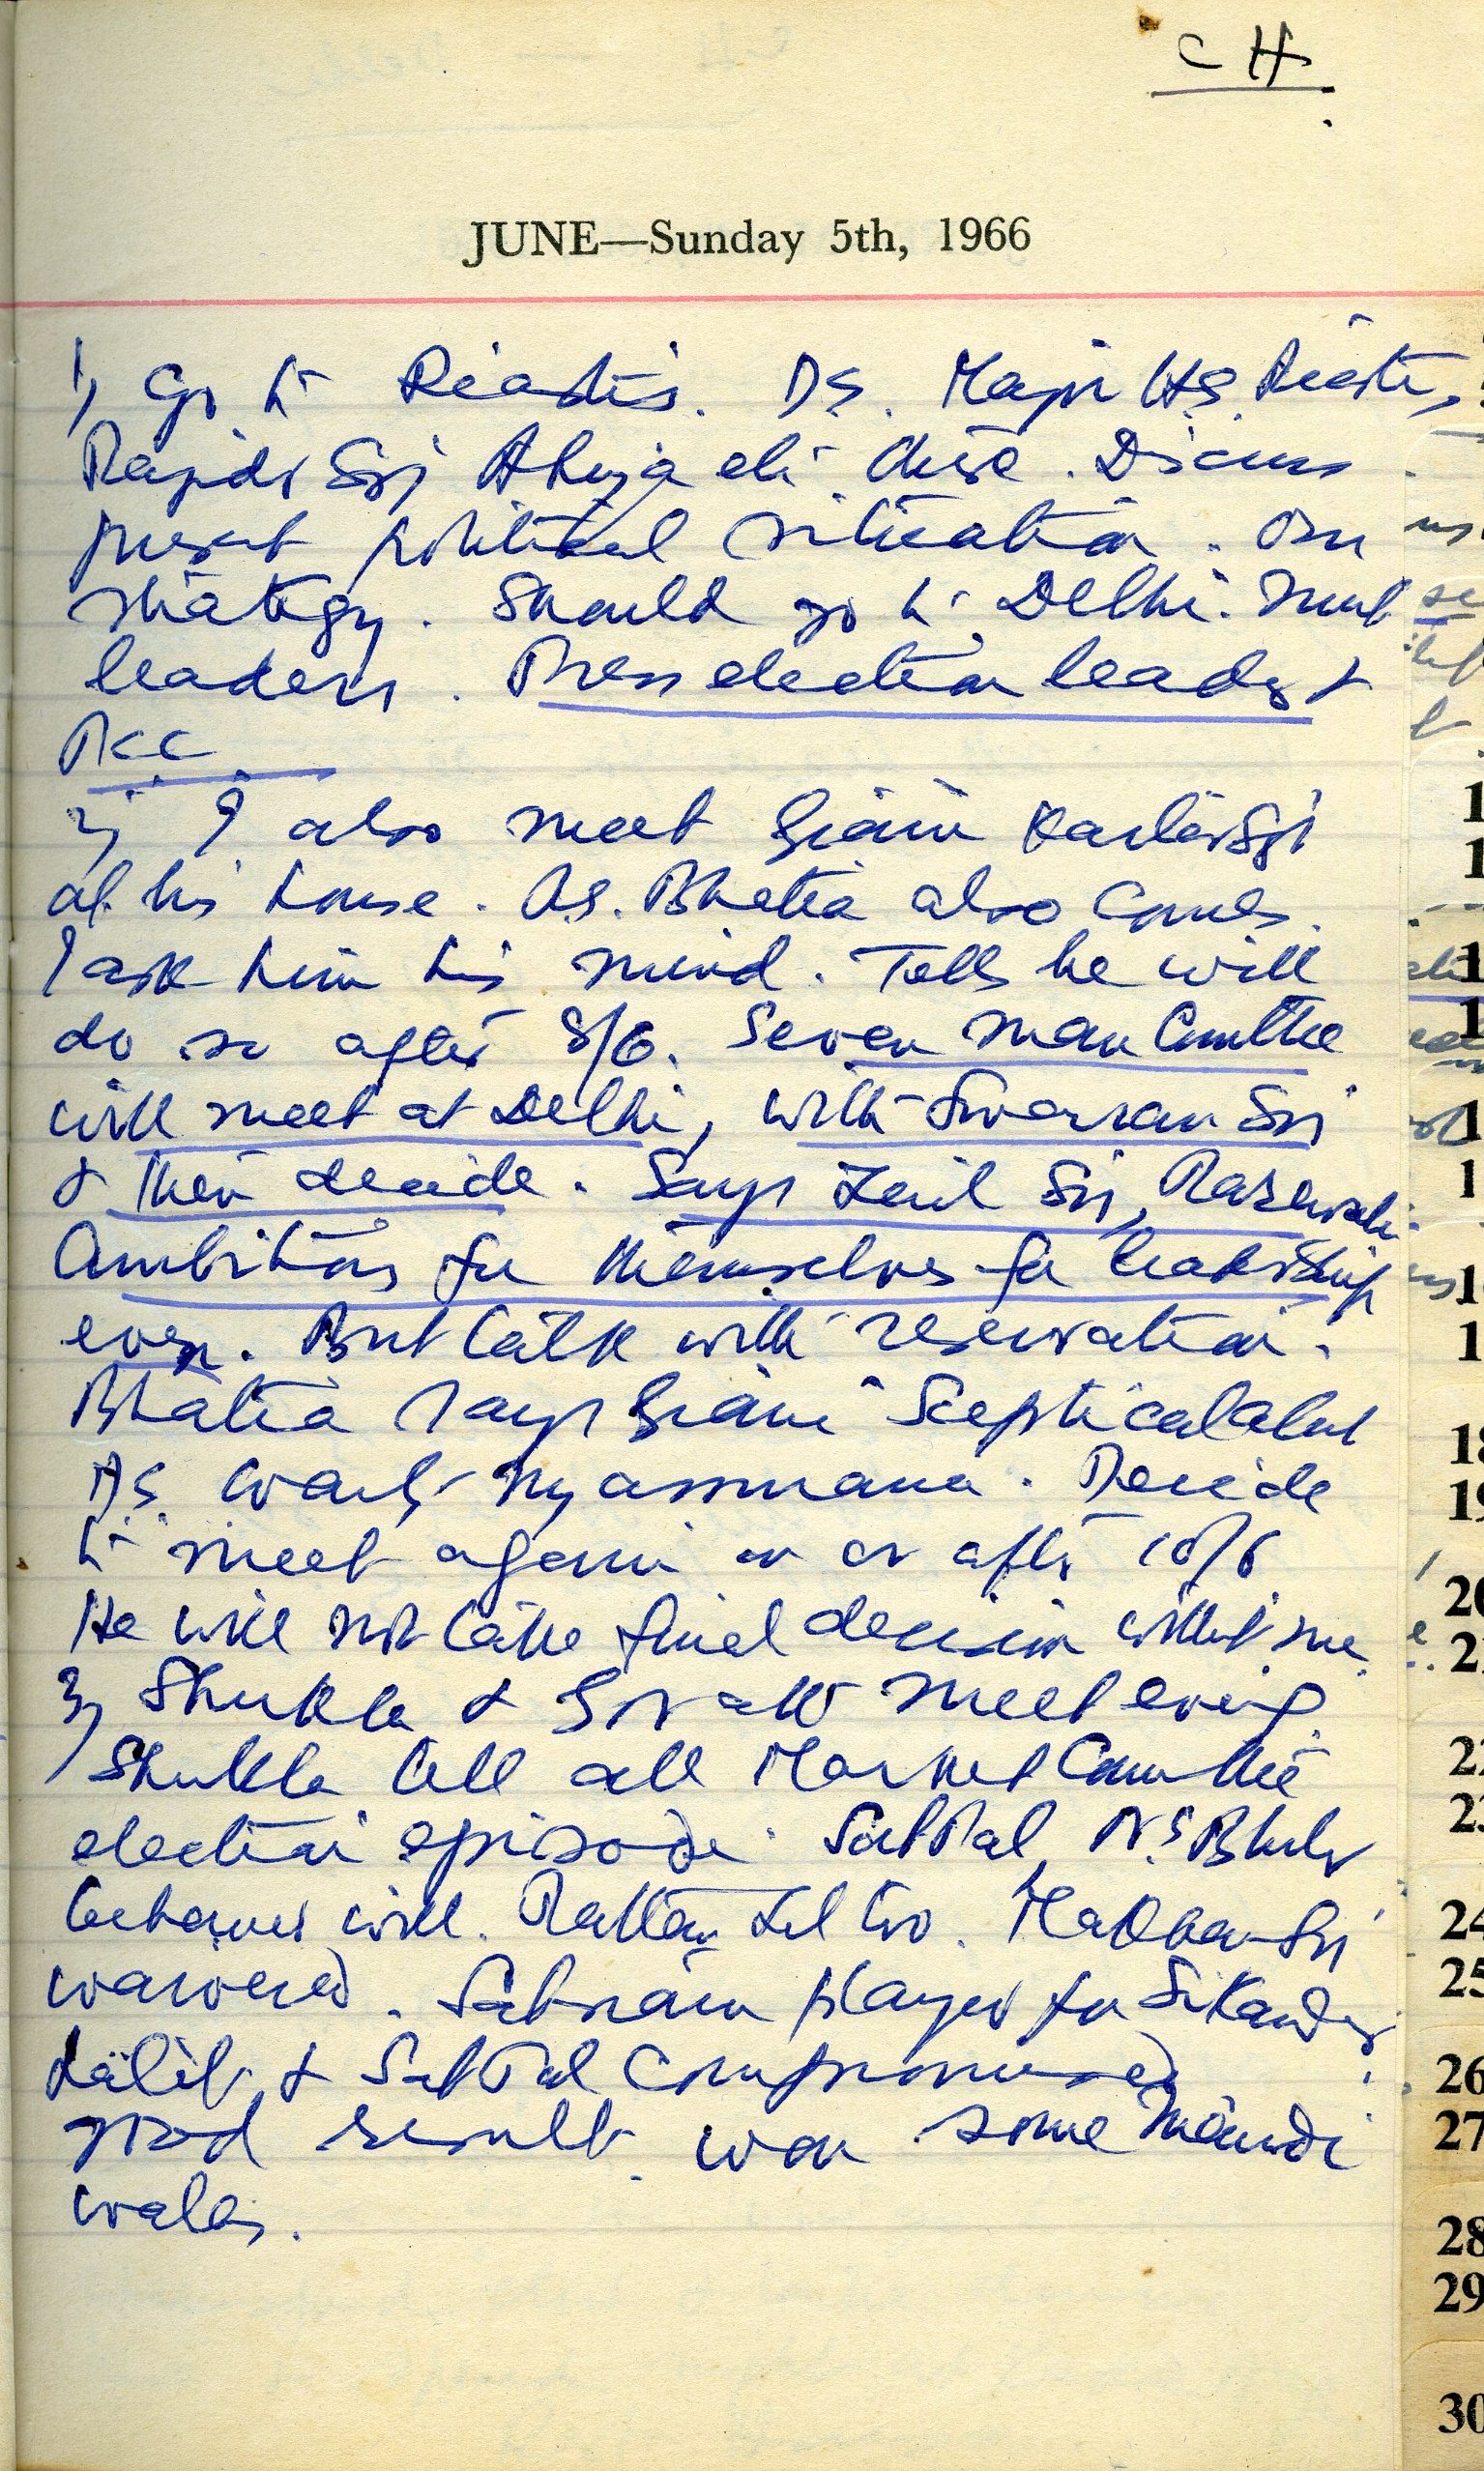 CH.
JUNE—Sunday 5th, 1966
1) Go to Riasti's. D.S. Major HS Riasti,
Rapinder Sgj Ahuja etc there. Discuss
present political situation. Our
strategy. Should go to Delhi. Meet
leaders. Press election leader &
PCC.
2) I also meet Giani Kartar Sgj
at his house. A.S. Bhatia also comes.
I ask him his mind. Tells he will
do so after 8/6. Seven man Comttee
will meet at Delhi, with Swarran Sgj
& then decide. Says Zail Sgj, Rarewala
Ambitions for themselves for leadership
even. But talk with reservation.
Bhatia says Giani Sceptical about
DS wants my assurance. Decide
to meet again on or after 10/6
He will not take final decision without me.
3) Shukla & meet evening
Shukla tell all Market Committee
election episode. SatPal, N.S. Bhuler
behaved well. Rattan Lal too. Makhan Sgj
wavered. Satnam played for Sikander
Lalit & SatPal compromised
good result. won some Mandi
walas.
1
1
1
1
1
1
1
1
18
19
20
21
22
23
24
25
26
27
28
29
30